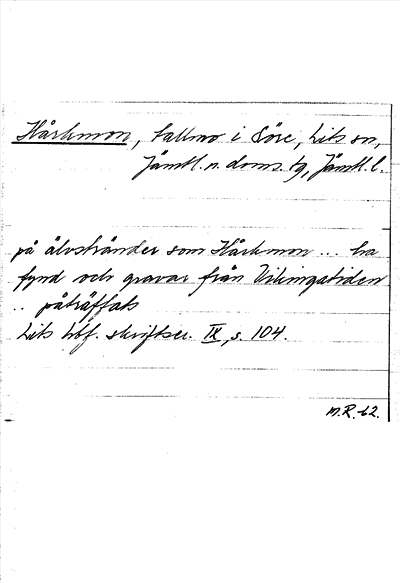 Hårkmon, tallmo i Söre, Lits sn,
Jämtl. n. doms. tg, Jämtl. l.
på älvstränder som Hårkmon ... ha
fynd och gravar från Vikingatiden
.. påträffats
Lits hbf. skriftser. IX, s. 104.
M.R. -62.